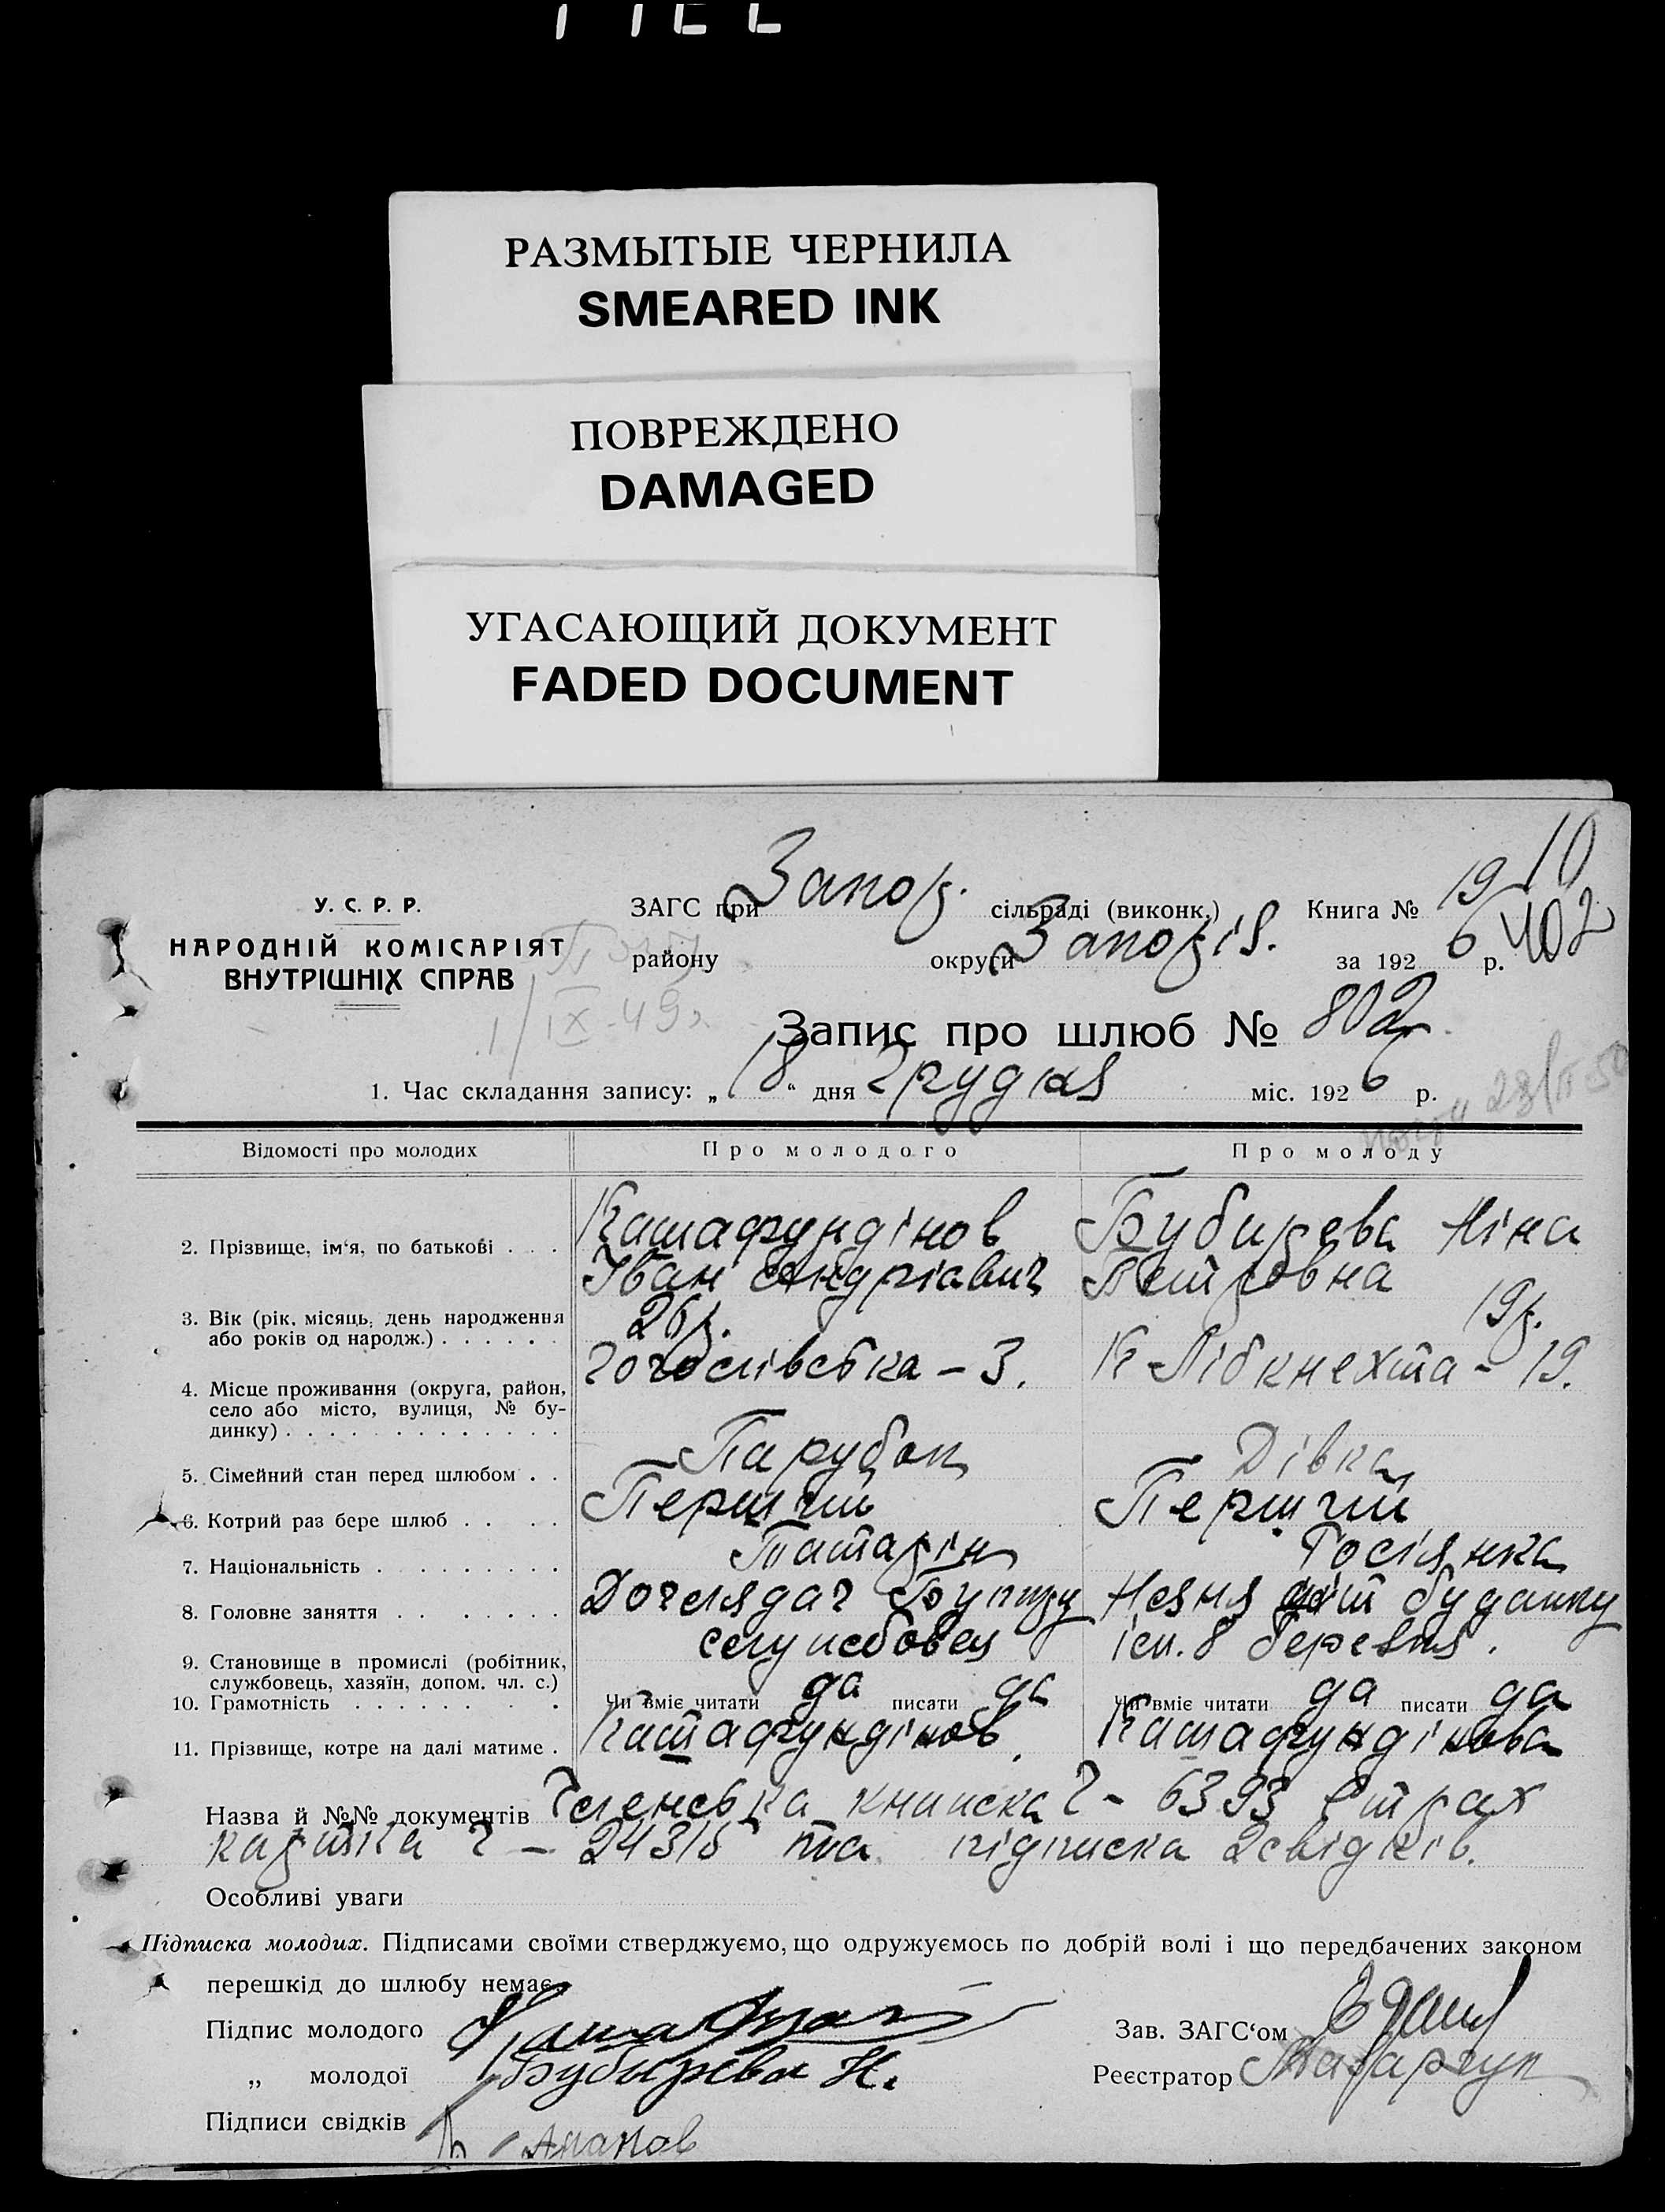 РАЗМЫТЫЕ ЧЕРНИЛА
SMEARED INK
ПОВРЕЖДЕНО
DAMAGED
УГАСАЮЩИЙ ДОКУМЕНТ
FADED DOCUMENT
10
У. С. Р. Р.
НАРОДНІЙ КОМІСАРІЯТ
ВНУТРІШНІХ СПРАВ
ЗАГС при Запор. сільраді (виконк.) Книга № 19
району округи Запоріз. за 1926 р. 402
IX-49
Запис про шлюб № 802
1. Час складання запису: „18“ дня Грудня міс. 1926 р.
Відомості про молодих Про молодого Про молоду
2. Прізвище, ім‘я, по батькові . . . Каташундінов Іван Андріавич Бубирева Ніна Петровна
3. Вік (рік, місяць, день народження або років од народж.) . . . . . . 26 р. 19 р.
4. Місце проживання (округа, район, село або місто, вулиця, № будинку) . . . . . . . . . . . . . Гоголівська – 3. К Лібкнехта – 19.
5. Сімейний стан перед шлюбом . . Парубок Дівка
6. Котрий раз бере шлюб . . . . Перший Перший
7. Національність . . . . . . . . . Татарін Росіянка
8. Головне заняття . . . . . . . Доглядач Няня дит будинку
9. Становище в промислі (робітник, службовець, хазяїн, допом. чл. с.) службовец ім. 8 березня.
10. Грамотність . . . . . . . . . Чи вміє читати да писати да Чи вміє читати да писати да
11. Прізвище, котре на далі матиме . Катафундінов. Катафундінова
Назва й №№ документів Членська книжка Ч – 6393 Страх
картка Ч – 24315 та підписка 2 свідків.
Особливі уваги
Підписка молодих. Підписами своїми стверджуємо, що одружуємось по добрій волі і що передбачених законом
перешкід до шлюбу немає.
Підпис молодого
Зав. ЗАГС‘ом
„ молодої Бубырева Н.
Реєстратор
Підписи свідків